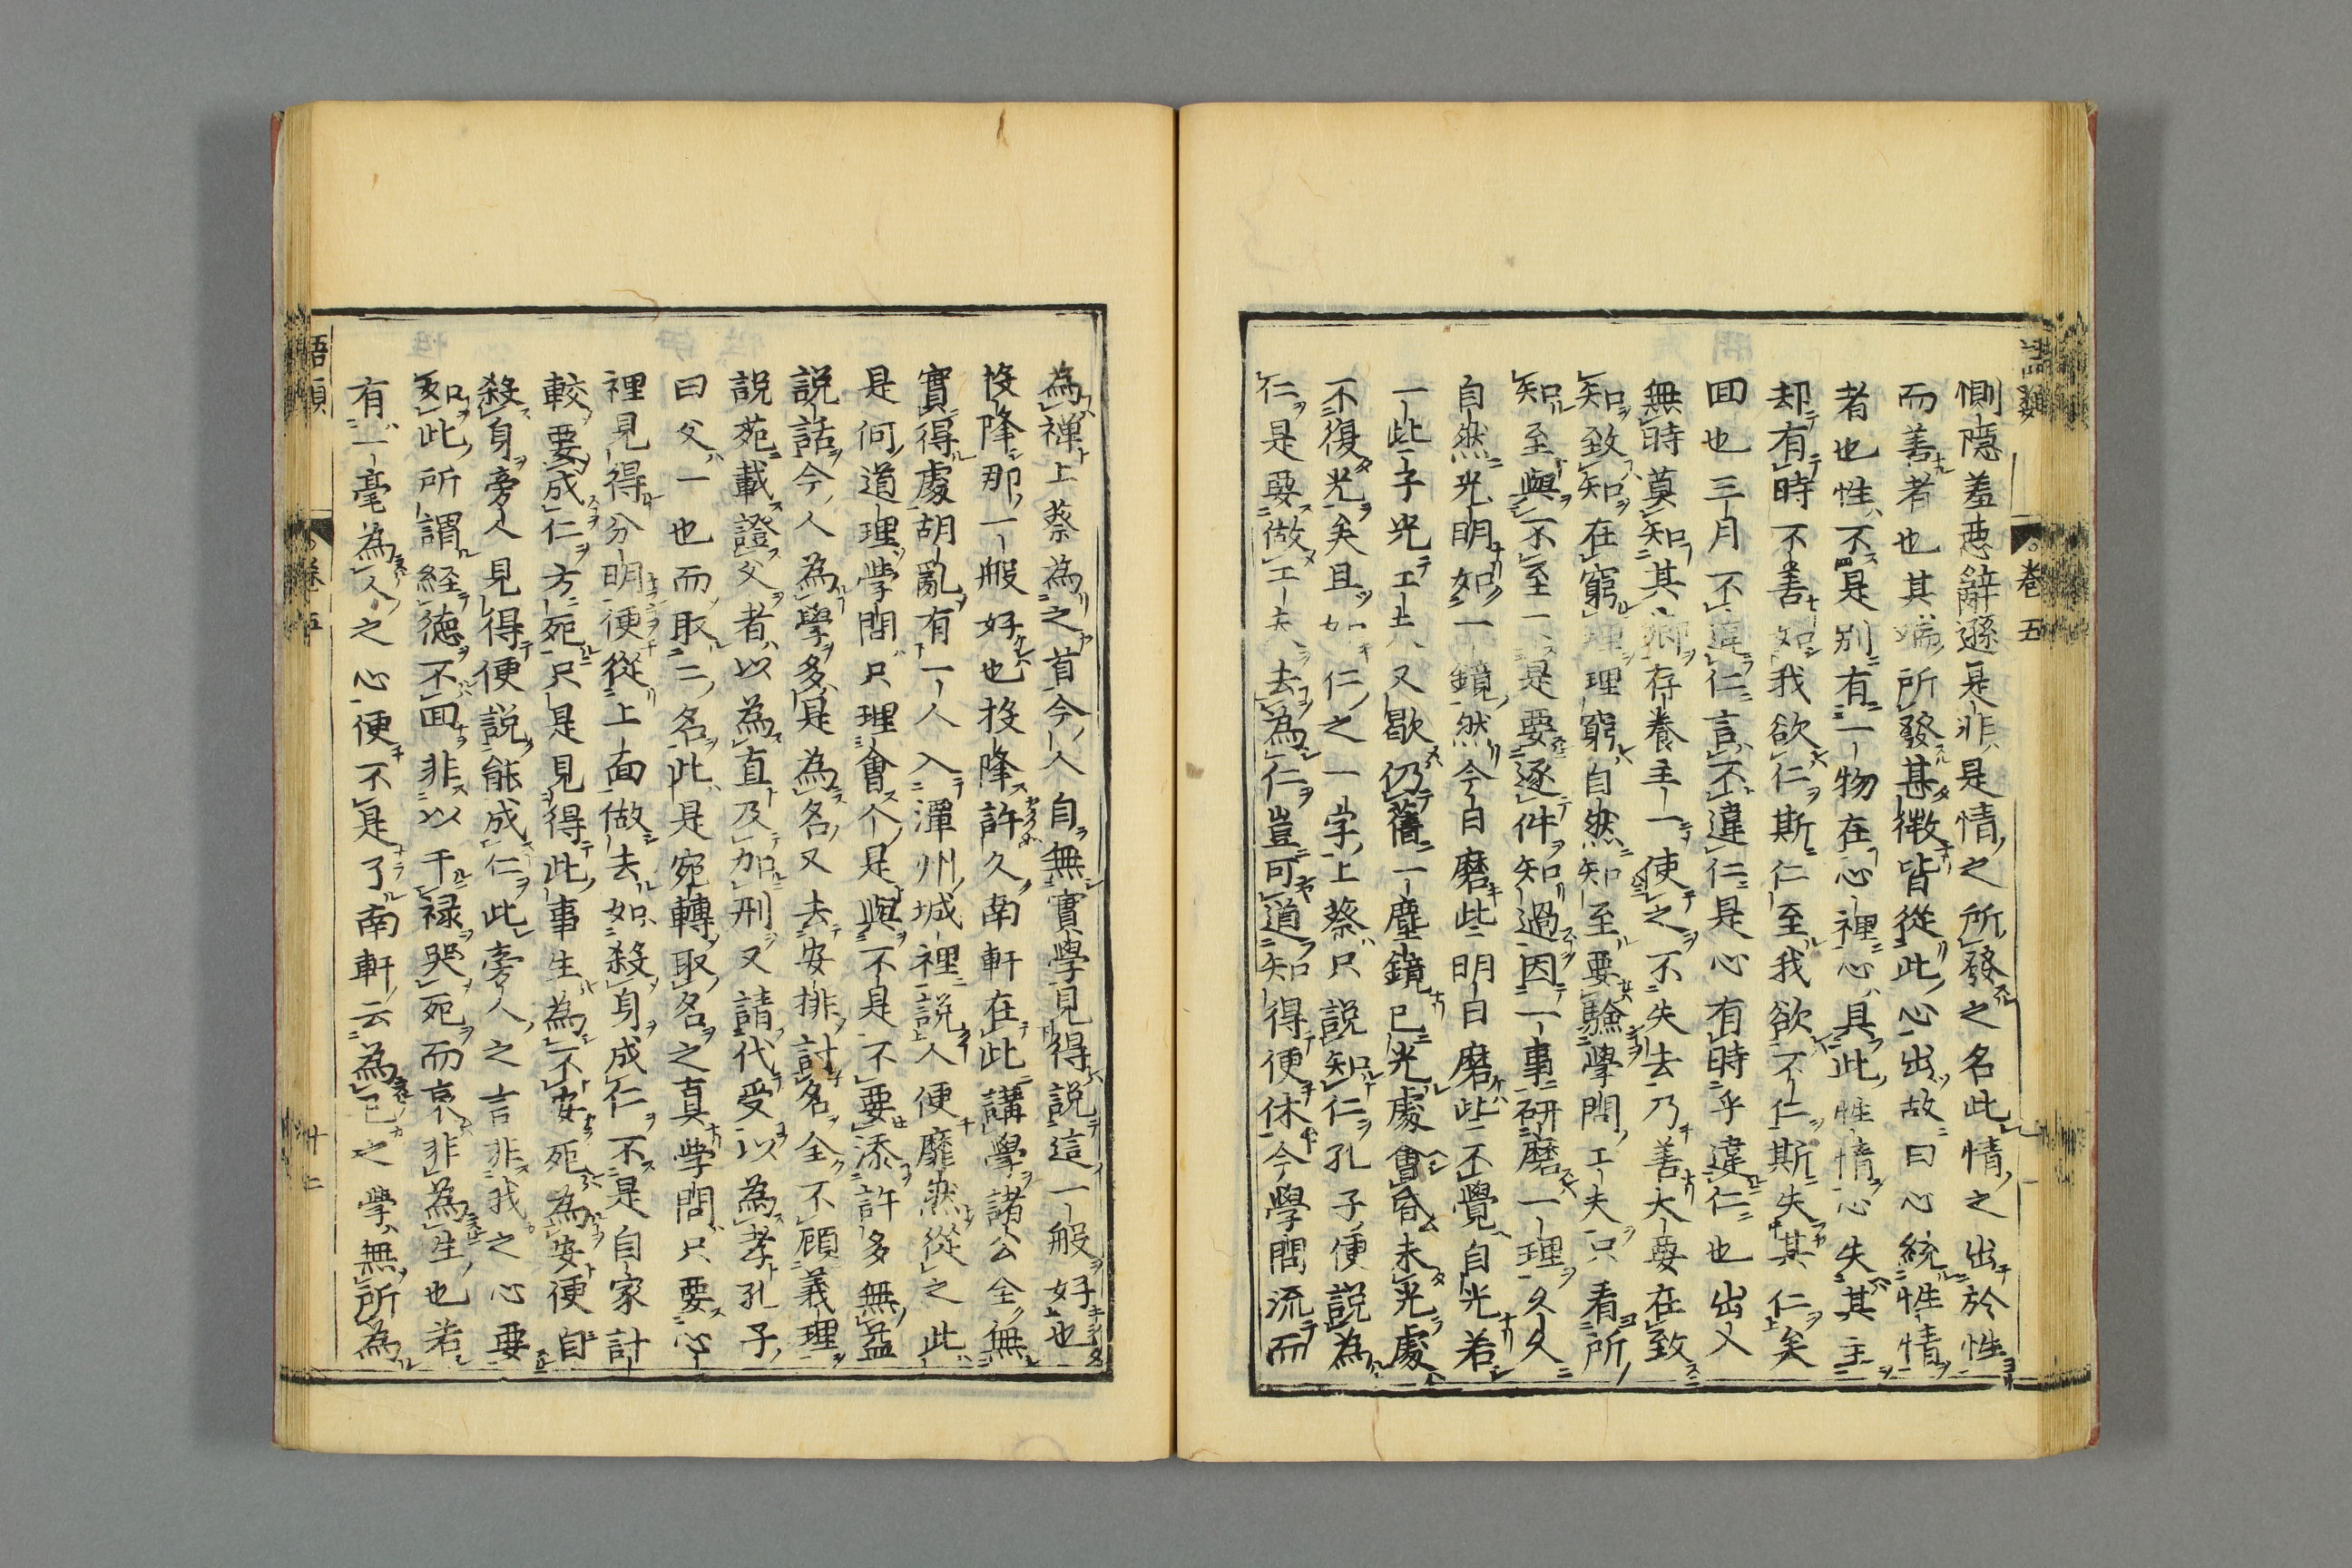 語類 卷五
惻隱羞惡辭遜是非是情之所發之名此情之出於性
而善者也其端所發甚微皆從此心出故曰心統性情
者也性不是別有一物在心裡心具此性情心失其主
却有時不善如我欲仁斯仁至我欲不仁斯失其仁矣
回也三月不違仁言不違仁是心有時乎違仁也出入
無時莫知其鄉存養主一使之不失去乃善大要在致
知致知在窮理理窮自然知至要驗學問工夫只看所
知至與不至不是要逐件知過因一事研磨一理久久
自然光明如一鏡然今日磨些明日磨些不覺自光若
一些子光工夫又歇仍舊一塵鏡已光處會昏未光處
不復光矣且如仁之一字上蔡只說知仁孔子便說為
仁是要做工夫去為仁豈可道知得便休今學問流而
為禪上蔡為之首今人自無實學見得說這一般好也
投降那一般好也投降許久南軒在此講學諸公全無
實得處胡亂有一人入潭州城裡說人便靡然從之此
是何道理學問只理會个是與不是不要添許多無益
說話今人為學多是為名又去安排討名全不顧義理
說苑載證父者以為直及加刑又請代受以為孝孔子
曰父一也而取二名此是宛轉取名之真學問只要心
裡見得分明便從上面做去如殺身成仁不是自家計
較要成仁方死只是見得此事生為不安死為安便自
殺身旁人見得便說能成仁此旁人之言非我之心要
如此所謂経德不回非以干禄哭死而哀非為生也若
有一毫為人之心便不是了南軒云為己之學無所為
語類 卷五 廿二